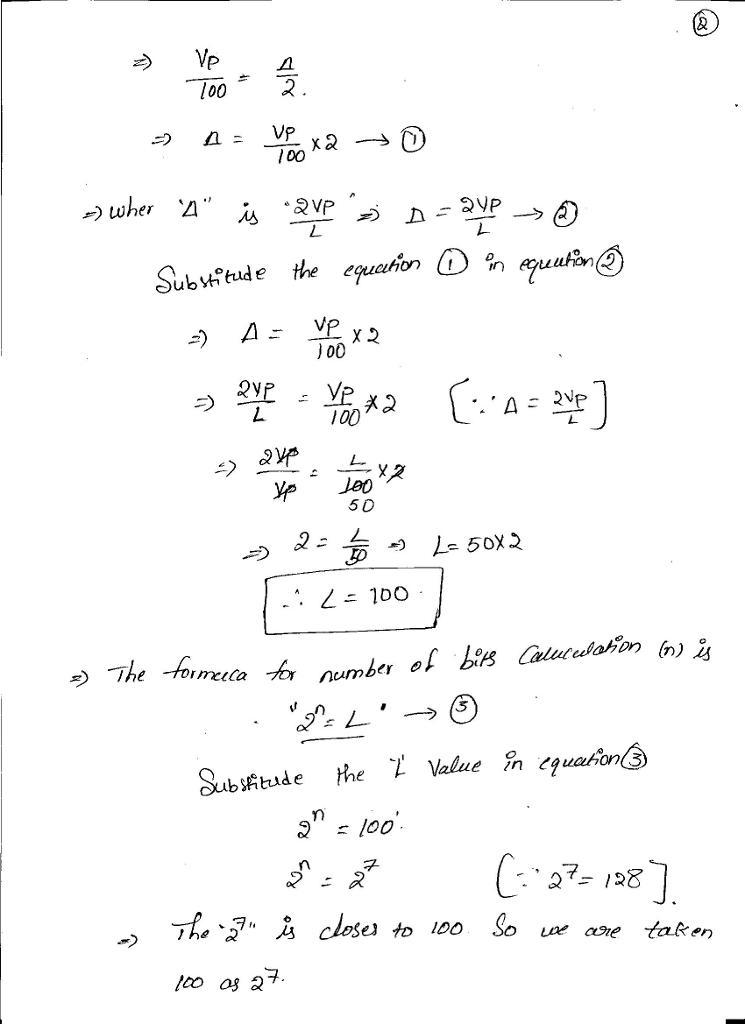 ②
⇒ Vp/100 = Δ/2.
⇒ Δ = Vp/100 × 2 → ①
⇒ wher "Δ" is "2Vp/L" ⇒ Δ = 2Vp/L → ②
Substitude the equation ① in equation ②
⇒ Δ = Vp/100 × 2
⇒ 2Vp/L = Vp/100 × 2 [∵ Δ = 2Vp/L]
⇒ 2Vp/Vp = L/100 × 2
50
⇒ 2 = L/50 ⇒ L = 50×2
∴ L = 100.
⇒ The formuca for number of bits Caluculation (n) is
"2ⁿ = L" → ③
Substitude the 'L' Value in equation ③
2ⁿ = 100.
2ⁿ = 2⁷ [∵ 2⁷ = 128].
⇒ The "2⁷" is closes to 100. So we are taken
100 as 2⁷.